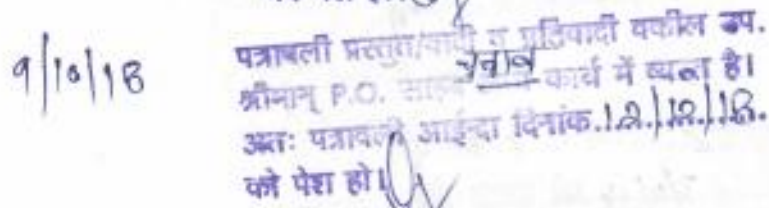 9/10/18
पत्रावली प्रस्तुत/वादी व प्रतिवादी वकील उप.
श्रीमान् P.O. साहब चुनाव कार्य में व्यस्त है।
अतः पत्रावली आईन्दा दिनांक.12/12/18.
को पेश हो।